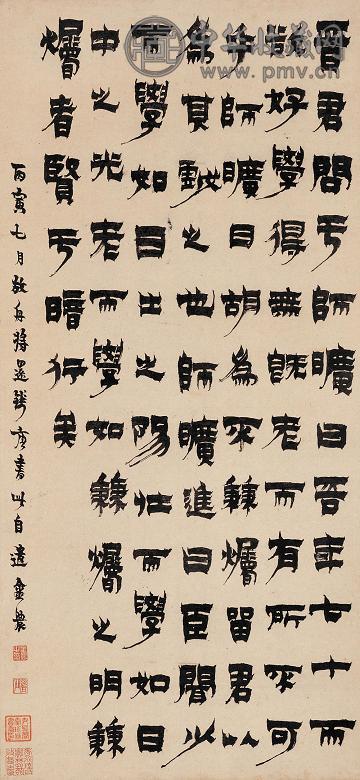 中华收藏网
www.pmv.cn
晉君問亏師曠曰吾年七十而
好學得無既老而有所不可
乎師曠曰胡為不秉爥晉君以
為其戲之也師曠進曰臣聞少
而學如日出之陽壯而學如日
中之光老而學如秉爥之明秉
爥者賢亏暗行矣
丙寅七月放舟將還錢唐書此自遣金農